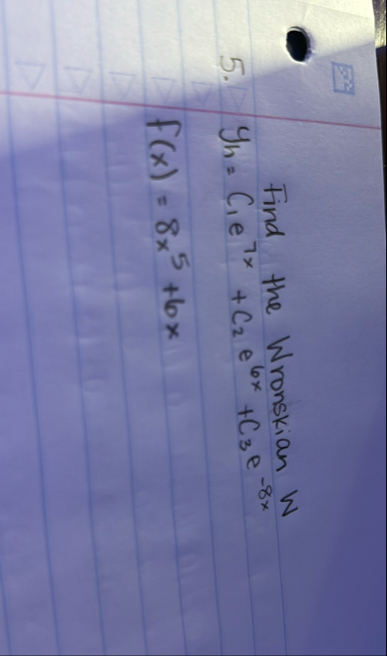 Find the Wronskian W
5. yh = C1e^7x + C2e^6x + C3e^-8x
f(x) = 8x^5 + 6x